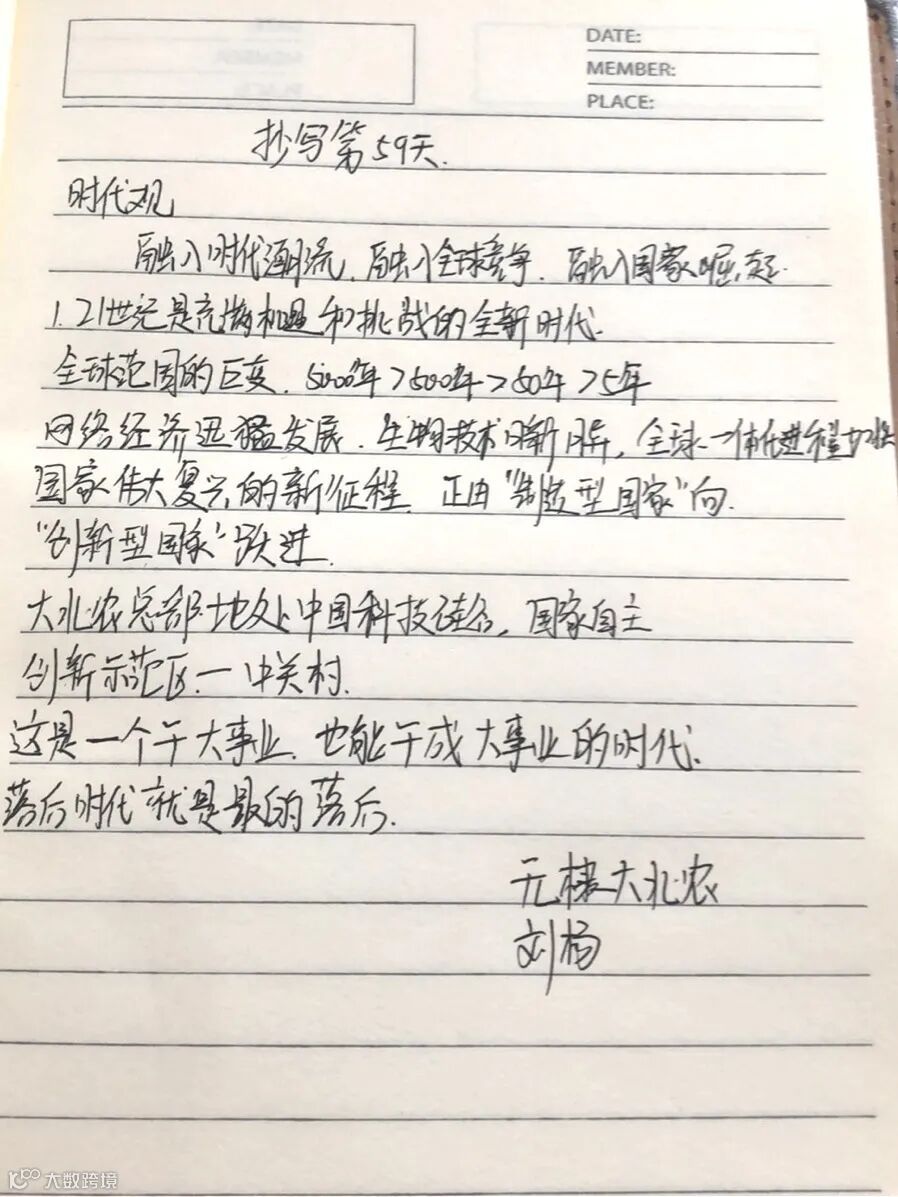 DATE:
MEMBER:
PLACE:
抄写第59天.
时代观
融入时代潮流.融入全球竞争.融入国家崛起.
1.21世纪是充满机遇和挑战的全新时代.
全球范围的巨变.5000年>500年>50年>5年
网络经济迅猛发展.生物技术日新月异,全球一体化进程加快
国家伟大复兴的新征程.正由“制造型国家”向.
“创新型国家”跃进.
大北农总部地处中国科技硅谷,国家自主
创新示范区一中关村.
这是一个干大事业.也能干成大事业的时代.
落后时代就是最的落后.
无棣大北农
刘杨
大数跨境